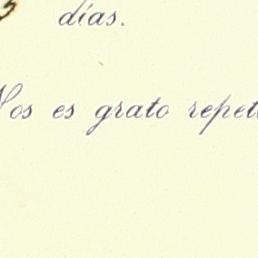 días.
Nos es grato repet